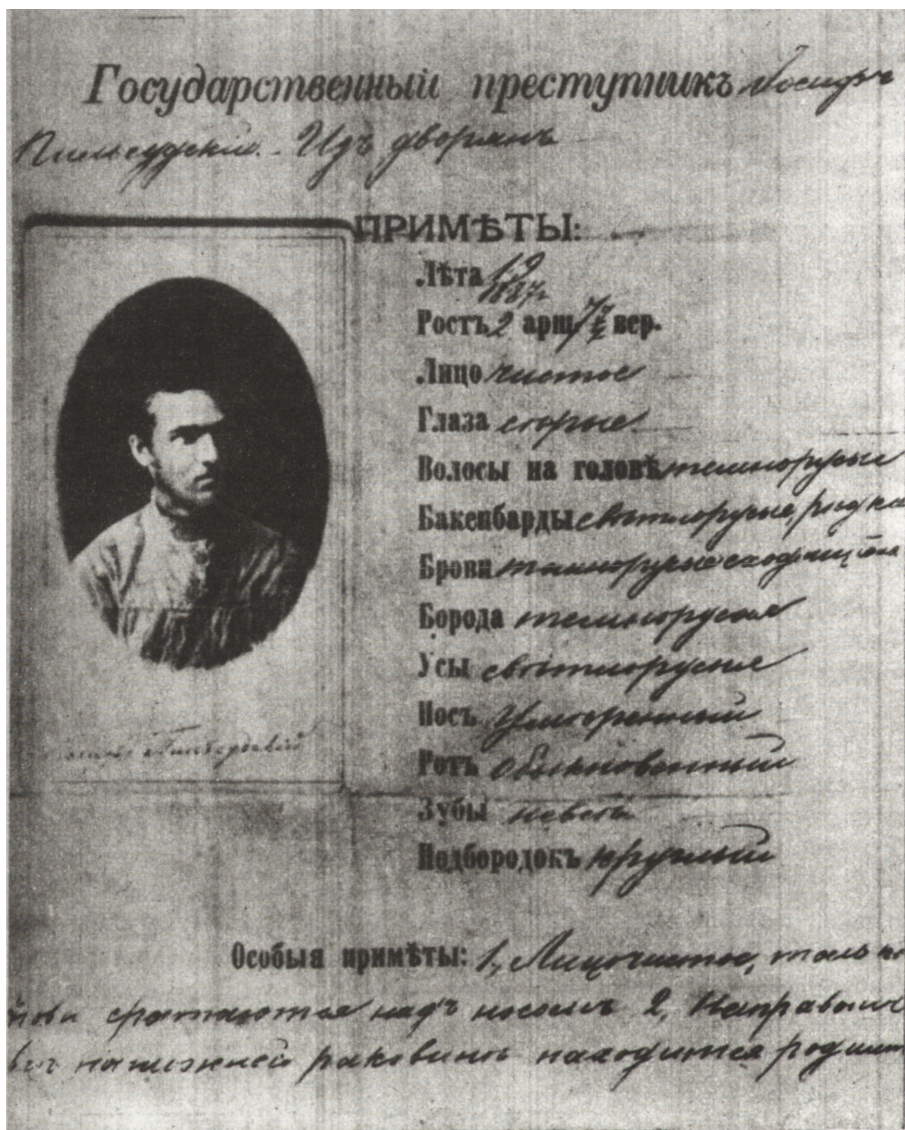 Государственный преступникъ Іосифъ
Пилсудскій. Изъ дворянъ
ПРИМѢТЫ:
Лѣта 19
1887г.
Ростъ 2 арш. вер.
Лицо чистое
Глаза сѣрые
Волосы на головѣ темнорусые
Бакенбарды свѣтлорусые,
Брови темнорусые
Борода темнорусая
Усы свѣтлорусые
Носъ Умѣренный
Ротъ обыкновенный
Зубы не всѣ
Подбородокъ круглый
Особыя примѣты: 1, Лицо чистое, только
надъ носомъ 2, На правомъ
раковинѣ находится